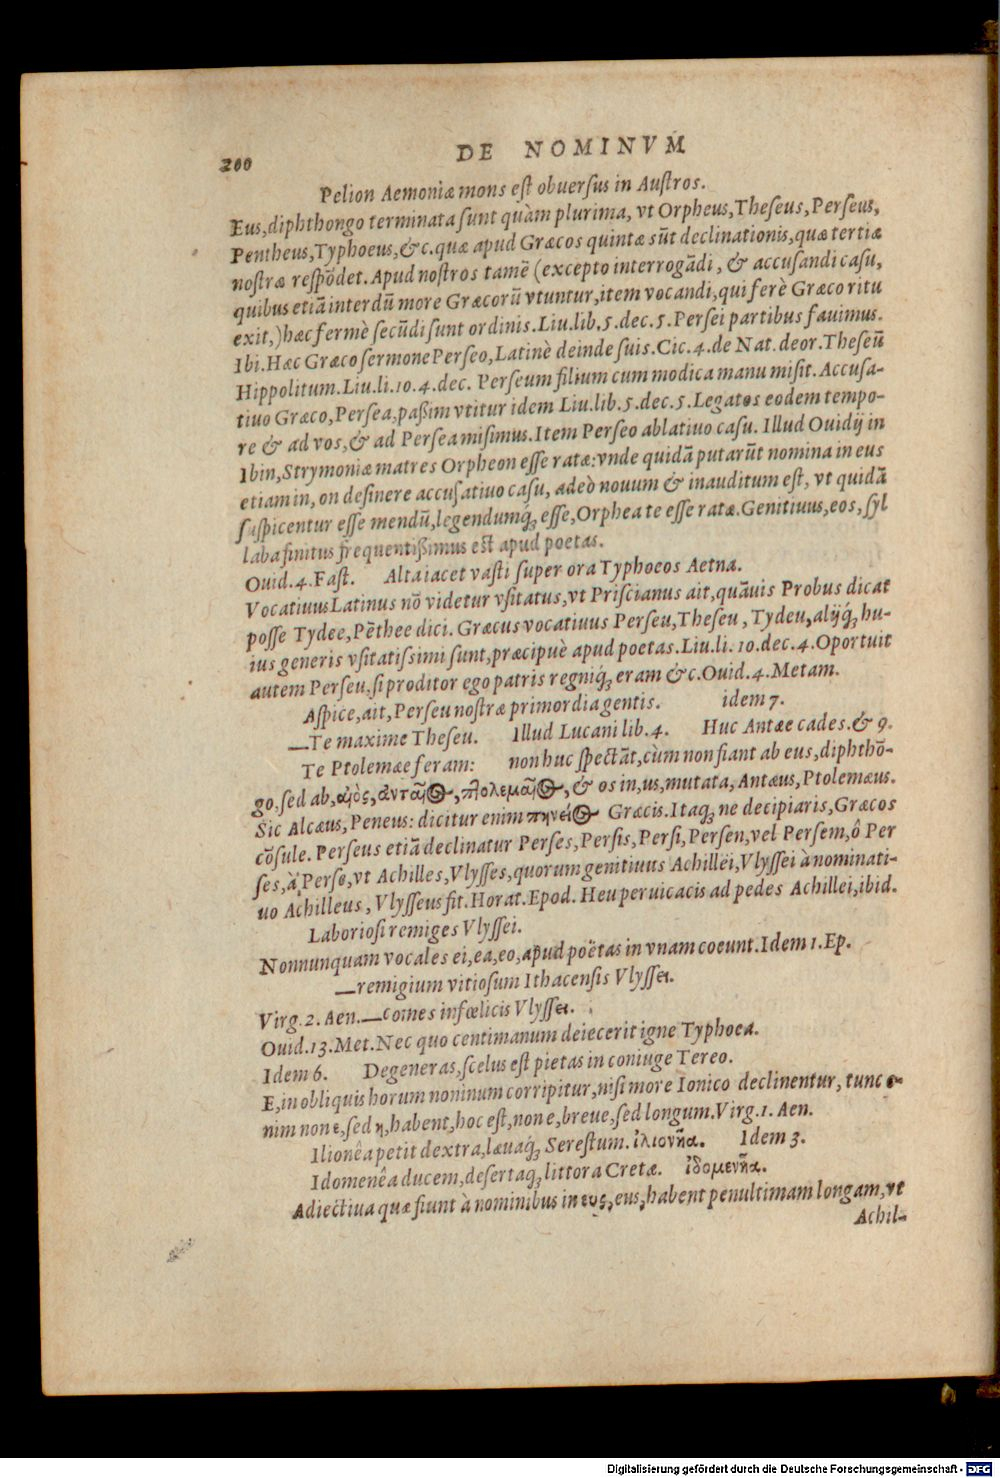 200
DE NOMINVM
Pelion Aemoniæ mons eſt obuerſus in Auſtros.
Eus, diphthongo terminata ſunt quàm plurima, vt Orpheus, Theſeus, Perſeus,
Pentheus, Typhoeus, &c. quæ apud Græcos quintæ sūt declinationis, quæ tertiæ
noſtræ reſpōdet. Apud noſtros tamē (excepto interrogādi, & accuſandi caſu,
quibus etiā interdū more Græcorū vtuntur, item vocandi, qui ferè Græco ritu
exit,) hæc fermè ſecūdi ſunt ordinis. Liu. lib. 5. dec. 5. Perſei partibus fauimus.
Ibi. Hæc Græco ſermone Perſeo, Latinè deinde ſuis. Cic. 4. de Nat. deor. Theſeū
Hippolitum. Liu. li. 10. 4. dec. Perſeum filium cum modica manu miſit. Accuſa-
tiuo Græco, Perſea, paßim vtitur idem Liu. lib. 5. dec. 5. Legatos eodem tempo-
re & ad vos, & ad Perſea miſimus. Item Perſeo ablatiuo caſu. Illud Ouidij in
Ibin, Strymoniæ matres Orpheon eſſe ratæ: vnde quidā putarūt nomina in eus
etiam in, on deſinere accuſatiuo caſu, adeò nouum & inauditum eſt, vt quidā
ſuſpicentur eſſe mendū, legendumq́; eſſe, Orphea te eſſe ratæ. Genitiuus, eos, ſyl
laba finitus frequentißimus eſt apud poetas.
Ouid. 4. Faſt. Alta iacet vaſti ſuper ora Typhoeos Aetna.
Vocatiuus Latinus nō videtur vſitatus, vt Priſcianus ait, quāuis Probus dicat
poſſe Tydee, Pēthee dici. Græcus vocatiuus Perſeu, Theſeu, Tydeu, alijq́; hu-
ius generis vſitatiſsimi ſunt, præcipuè apud poetas. Liu. li. 10. dec. 4. Oportuit
autem Perſeu, ſi proditor ego patris regniq́; eram &c. Ouid. 4. Metam.
Aſpice, ait, Perſeu noſtræ primordia gentis. idem 7.
—Te maxime Theſeu. Illud Lucani lib. 4. Huc Antæe cades. & 9.
Te Ptolemæe feram: non huc ſpectāt, cùm non fiant ab eus, diphthō-
go, ſed ab, αιὸς, ἀνταῖος, πτολεμαῖος, & os in, us, mutata, Antæus, Ptolemæus.
Sic Alcæus, Peneus: dicitur enim πηνεύς Græcis. Itaq; ne decipiaris, Græcos
cōſule. Perſeus etiā declinatur Perſes, Perſis, Perſi, Perſen, vel Perſem, ô Per
ſes, à Perſe, vt Achilles, Vlyſſes, quorum genitiuus Achillëi, Vlyſſei à nominati-
uo Achilleus, Vlyſſeus fit. Horat. Epod. Heu peruicacis ad pedes Achillei, ibid.
Laborioſi remiges Vlyſſei.
Nonnunquam vocales ei, ea, eo, apud poëtas in vnam coeunt. Idem 1. Ep.
—remigium vitioſum Ithacenſis Vlyſſei.
Virg. 2. Aen. —comes infœlicis Vlyſſei.
Ouid. 13. Met. Nec quo centimanum deiecerit igne Typhoea.
Idem 6. Degeneras, ſcelus eſt pietas in coniuge Tereo.
E, in obliquis horum nominum corripitur, niſi more Ionico declinentur, tunc e-
nim non ε, ſed η, habent, hoc eſt, non e, breue, ſed longum. Virg. 1. Aen.
Ilionêa petit dextra, læuaq́; Sereſtum. ἰλιονῆα. Idem 3.
Idomenêa ducem, deſertaq; littora Cretæ. ἰδομενῆα.
Adiectiua quæ fiunt à nominibus in ευς, eus, habent penultimam longam, vt
Achil-
Digitalisierung gefördert durch die Deutsche Forschungsgemeinschaft - DFG